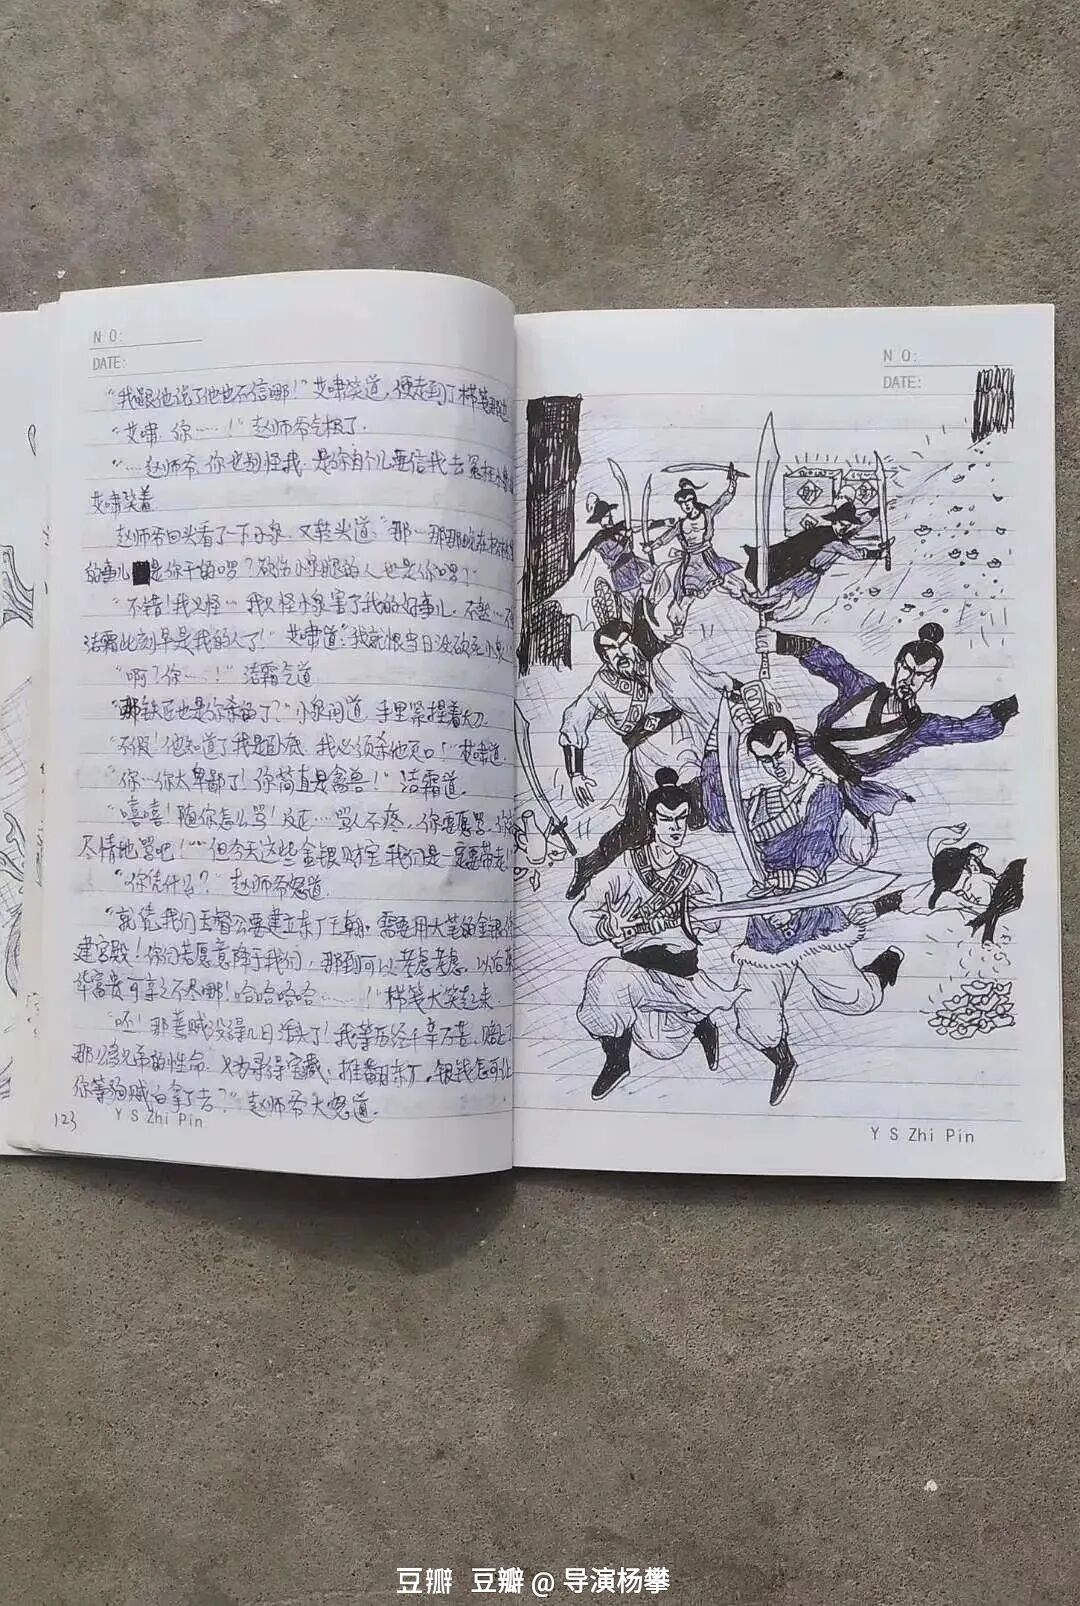 NO:
DATE:
"我跟他说了他也不信哪!"艾啸笑道,便走到了梯笺那边
"艾啸,你……!"赵师爷气极了.
"……赵师爷,你也别怪我,是你自个儿要信我去冤枉小泉
艾啸笑着
赵师爷回头看了一下小泉,又转头道,"那…那那晚在
的事儿是你干的啰?砍伤小泉眼的人也是你啰?"
"不错!我又怪…我只怪小泉害了我的好事儿,不然…不
洁霜此刻早是我的人了!"艾啸道"我就恨当日没砍死小泉!
"啊?你……!"洁霜气道
"那铁匠也是你杀的了?"小泉问道,手里紧捏着大刀
"不假!他知道了我是卧底,我必须杀他灭口!"艾啸道
"你…你太卑鄙了!你简直是禽兽!"洁霜道.
"嘻嘻!随你怎么骂!反正…骂人不疼,你要愿骂,你
尽情地骂吧!""但今天这些金银财宝我们是一定要带走!
"你凭什么?"赵师爷怒道.
"就凭我们王督公要建立东厂王朝,需要用大笔的金银
建宫殿!你们若愿意降于我们,那到可以考虑考虑,以后荣
华富贵可享之不尽哪!哈哈哈哈………!"梯笺大笑起来.
"呸!那姜贼没得几日活头了!我等历经千辛万苦,赔上了
那么多兄弟的性命,才寻得宝藏,推翻东厂,银钱怎可让
你等狗贼白拿了去?"赵师爷大怒道.
123
Y S Zhi Pin
NO:
DATE:
财
Y S Zhi Pin
豆瓣 豆瓣@导演杨攀